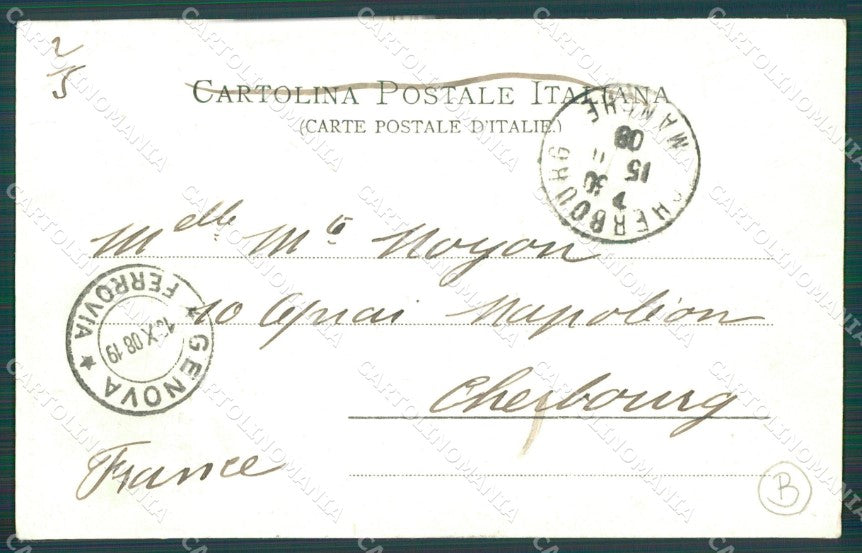 2
5
CARTOLINA POSTALE ITALIANA
(CARTE POSTALE D'ITALIE.)
CHERBOURG MANCHE
15
08
Melle Mte Noyon
10 Quai Napoléon
Cherbourg
France
GENOVA FERROVIA
X 08 19
B
CARTOLINOMANIA